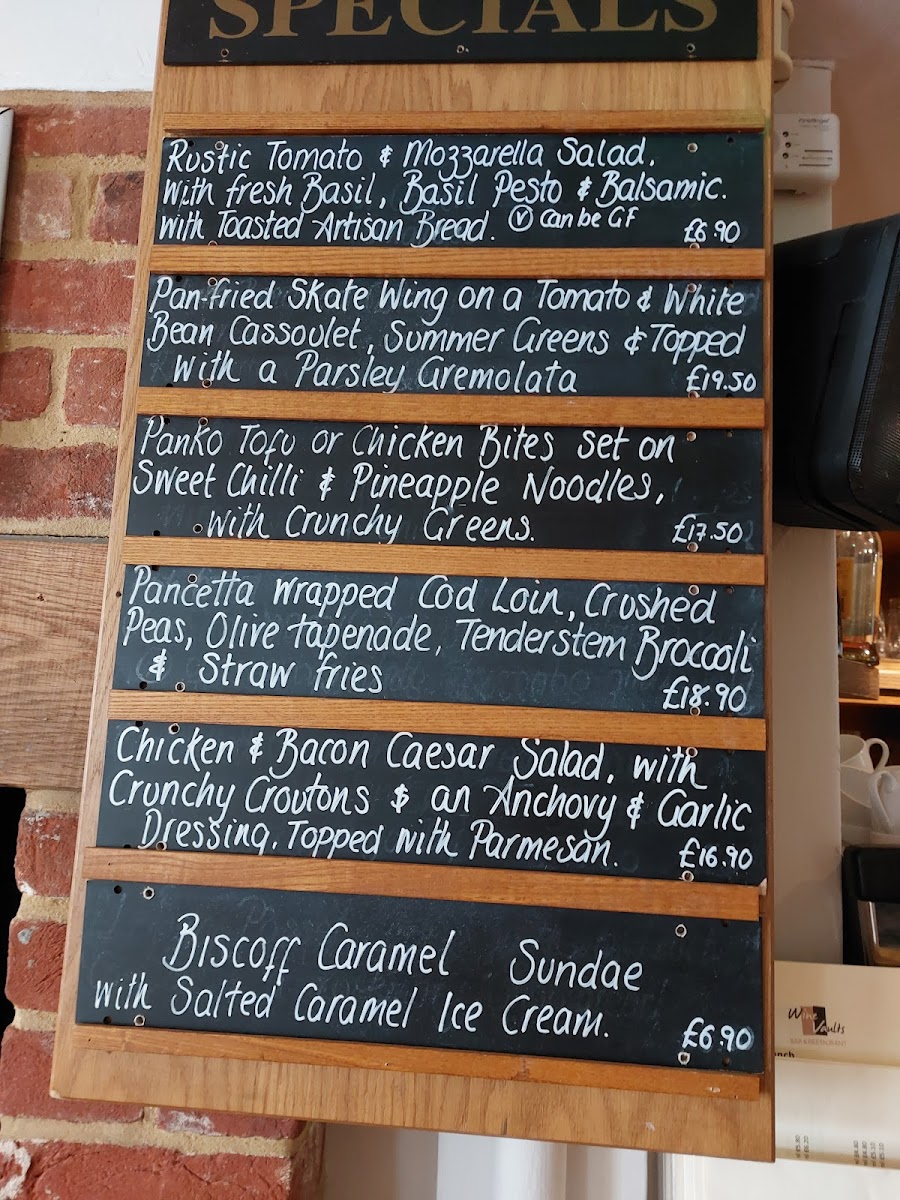 SPECIALS
Rustic Tomato & Mozzarella Salad.
With fresh Basil, Basil Pesto & Balsamic.
with Toasted Artisan Bread. Ⓥ Can be GF £6.90
Pan-fried Skate Wing on a Tomato & White
Bean Cassoulet, Summer Greens & Topped
with a Parsley Gremolata £19.50
Panko Tofu or Chicken Bites set on
Sweet Chilli & Pineapple Noodles,
with Crunchy Greens. £17.50
Pancetta wrapped Cod Loin, Crushed
Peas, Olive tapenade, Tenderstem Broccoli
& Straw fries £18.90
Chicken & Bacon Caesar Salad, with
Crunchy Croutons & an Anchovy & Garlic
Dressing. Topped with Parmesan. £16.90
Biscoff Caramel Sundae
with Salted Caramel Ice Cream. £6.90
Wine
Vaults
BAR & RESTAURANT